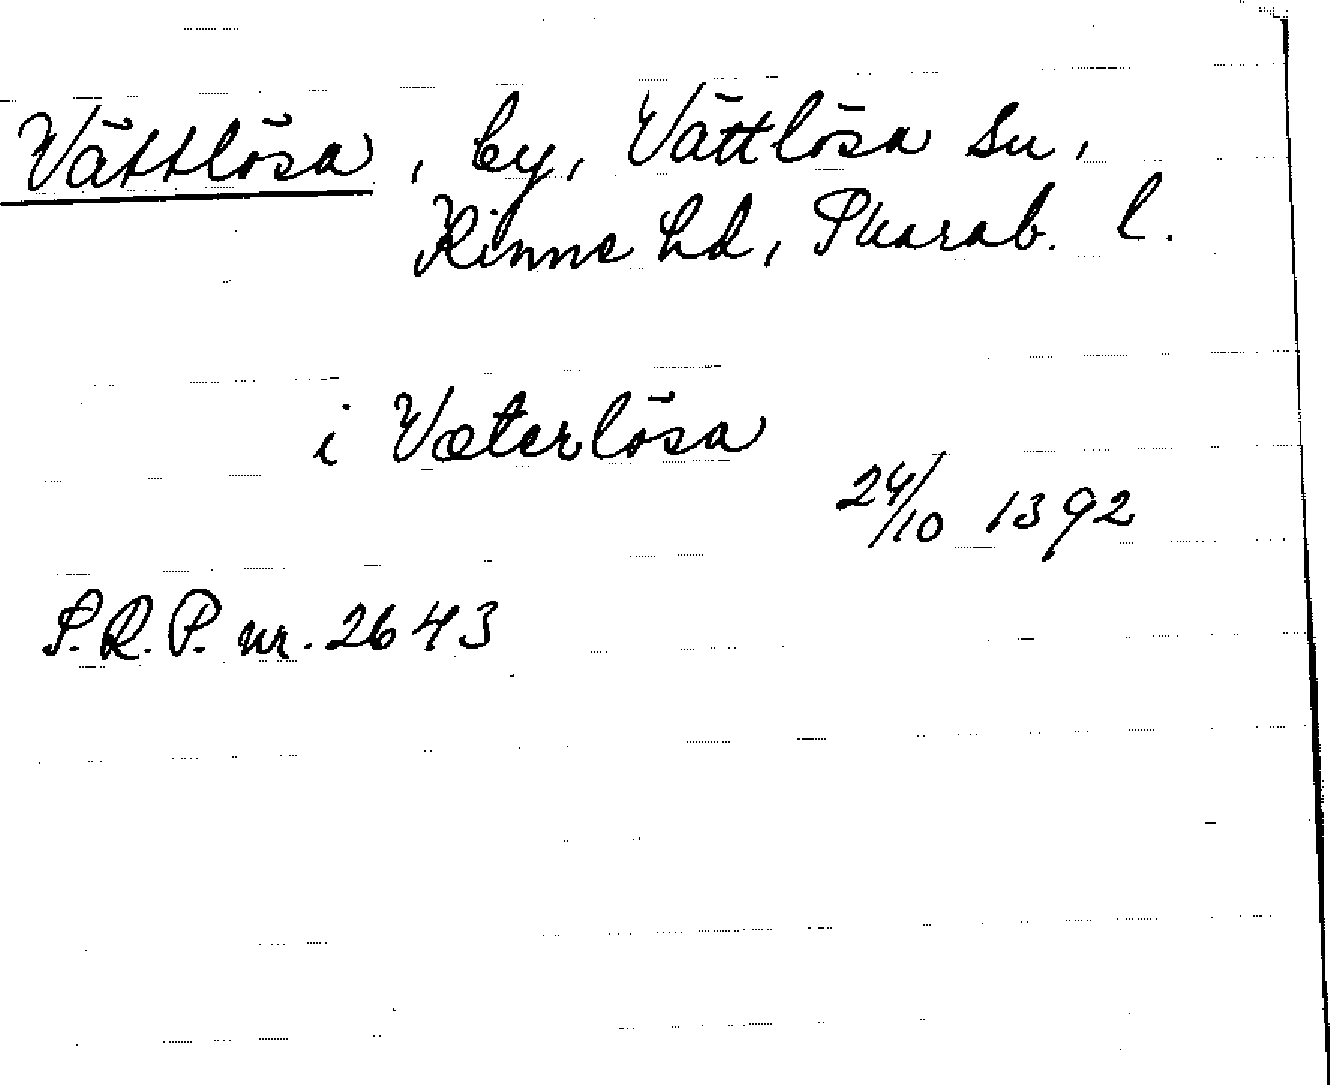 Vättlösa, by, Vättlösa sn,
Kinne hd, Skarab. l.
i Væterlösa
24/10 1392
S.R.P. nr. 2643